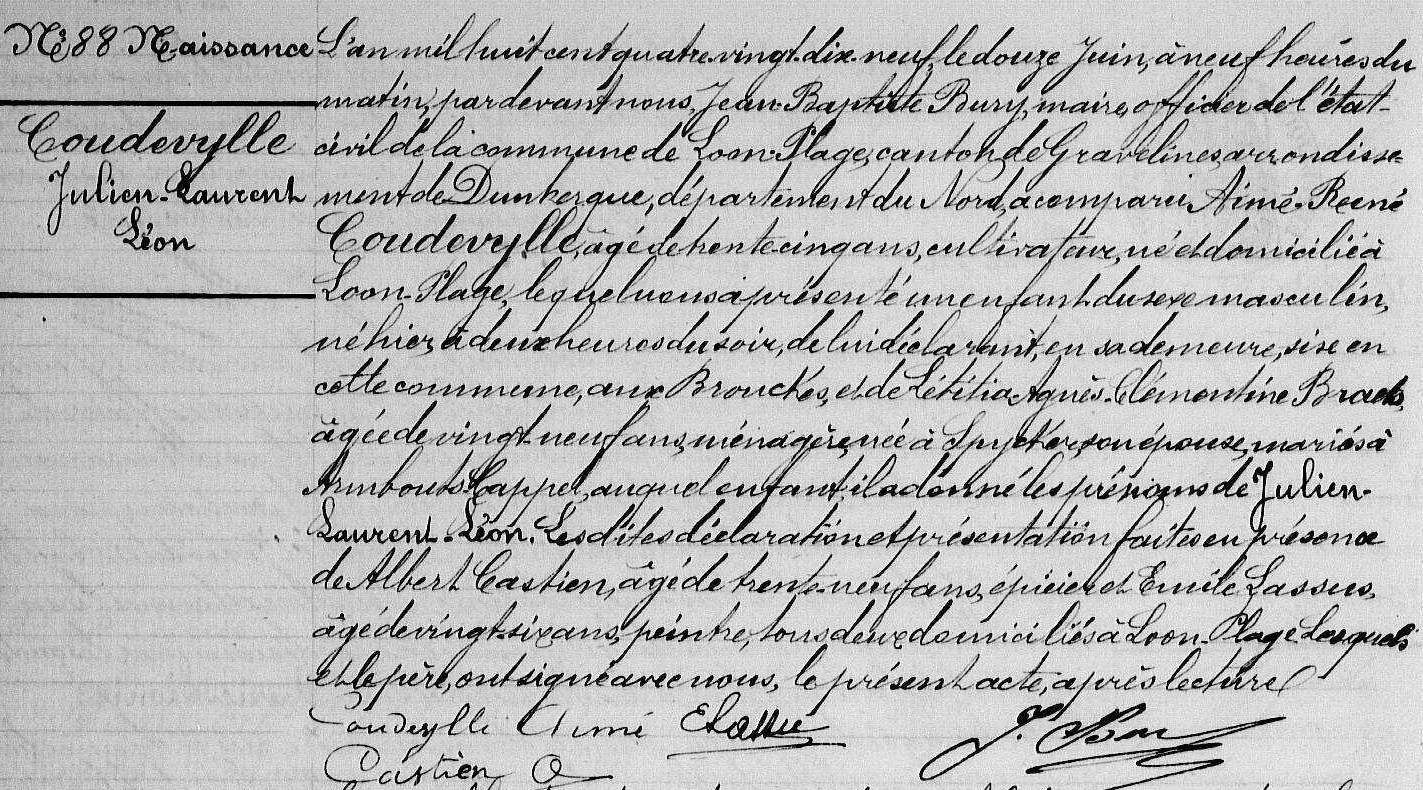 N° 88 Naissance
Coudevylle
Julien-Laurent
Léon
L'an mil huit cent quatre-vingt-dix-neuf, le douze Juin, à neuf heures du
matin, par devant nous, Jean-Baptiste Bury, maire, officier de l'état-
civil de la commune de Loon-Plage, canton de Gravelines, arrondisse-
ment de Dunkerque, département du Nord, a comparu Aimé-René
Coudevylle, âgé de trente-cinq ans, cultivateur, né et domicilié à
Loon-Plage, lequel nous a présenté un enfant du sexe masculin,
né hier, à deux heures du soir, de lui déclarant, en sa demeure, sise en
cette commune, aux Brouckes, et de Létitia-Agnès-Clémentine Braems,
âgée de vingt-neuf ans, ménagère, née à Spycker, son épouse, mariés à
Armbouts-Cappel, auquel enfant il a donné les prénoms de Julien-
Laurent-Léon. Les dites déclaration et présentation faites en présence
de Albert Castien, âgé de trente-neuf ans, épicier et Emile Lassus,
âgé de vingt-six ans, peintre, tous deux domiciliés à Loon-Plage. Lesquels
et le père, ont signé avec nous, le présent acte, après lecture
Coudevylle Aimé ELassus J. Bury
Castien A